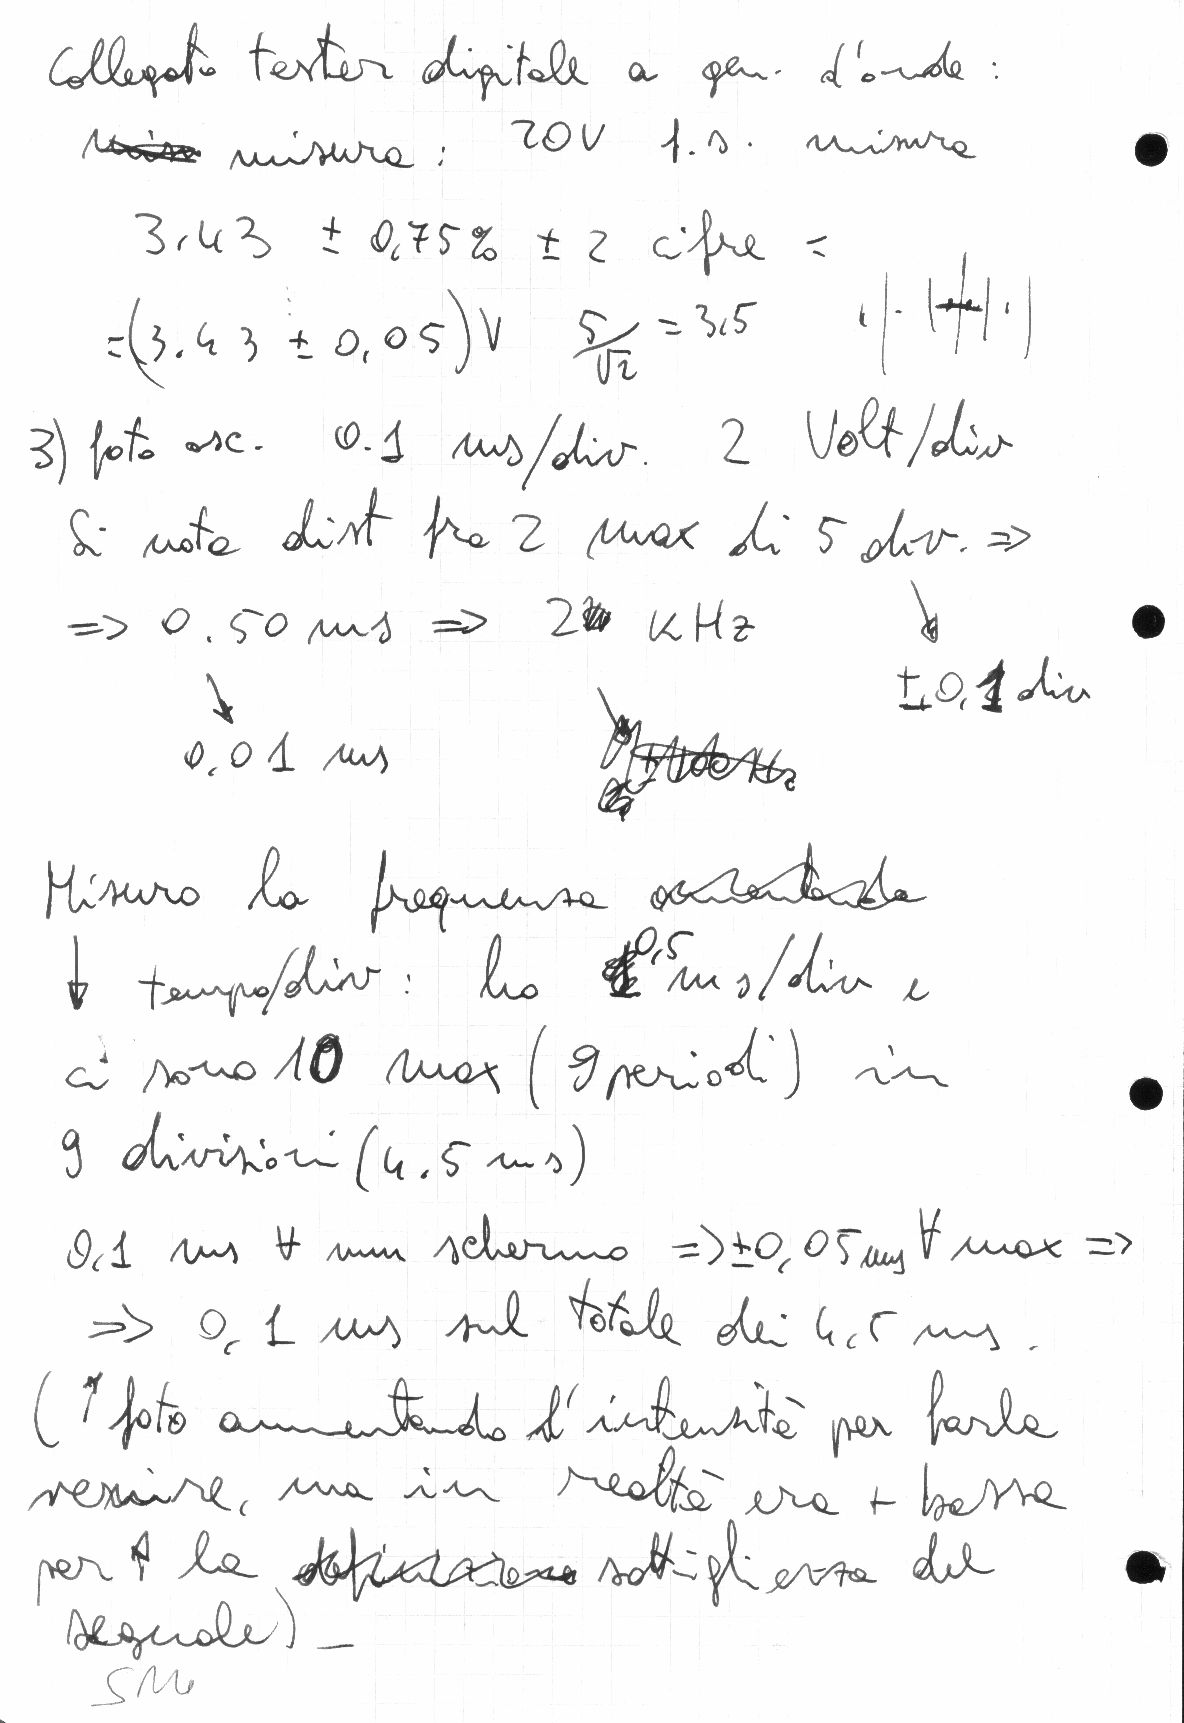 Collegato tester digitale a gen. d'onde:
misura: 20V f.s. misura
3.43 ± 0,75% ± 2 cifre =
=(3.43 ± 0,05)V 5/√2 = 3,5
3) foto osc. 0.1 ms/div. 2 Volt/div
Si nota dist fra 2 max di 5 div. =>
=> 0.50 ms => 2 KHz
±0,1 div
0.01 ms
Misuro la frequenza
↓ tempo/div: ho 0,5 ms/div e
ci sono 10 max (9 periodi) in
9 divisioni (4.5 ms)
0,1 ms ∀ mm schermo => ±0,05 ms ∀ max =>
=> 0,1 ms sul totale dei 4,5 ms.
(↑ foto aumentando l'intensità per farla
venire, ma in realtà era + bassa
per ↑ la sottigliezza del
segnale) –